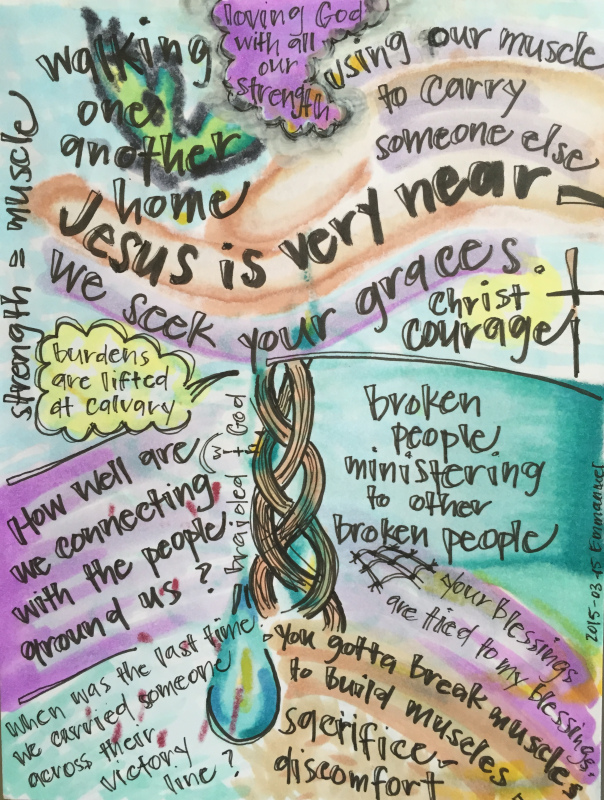 loving God
with all
our
strength
walking
one
another
home
using our muscle
to carry
someone else
strength = muscle
Jesus is very near -
we seek your graces.
christ
courage
burdens
are lifted
at calvary
braided w God
broken
people
ministering
to other
broken people
How well are
we connecting
with the people
around us?
your blessings
are tied to my blessings.
2015-03-15 Emmanuel
when was the last time
we carried someone
across their
victory
line?
you gotta break muscles
to build muscles
sacrifice -
discomfort